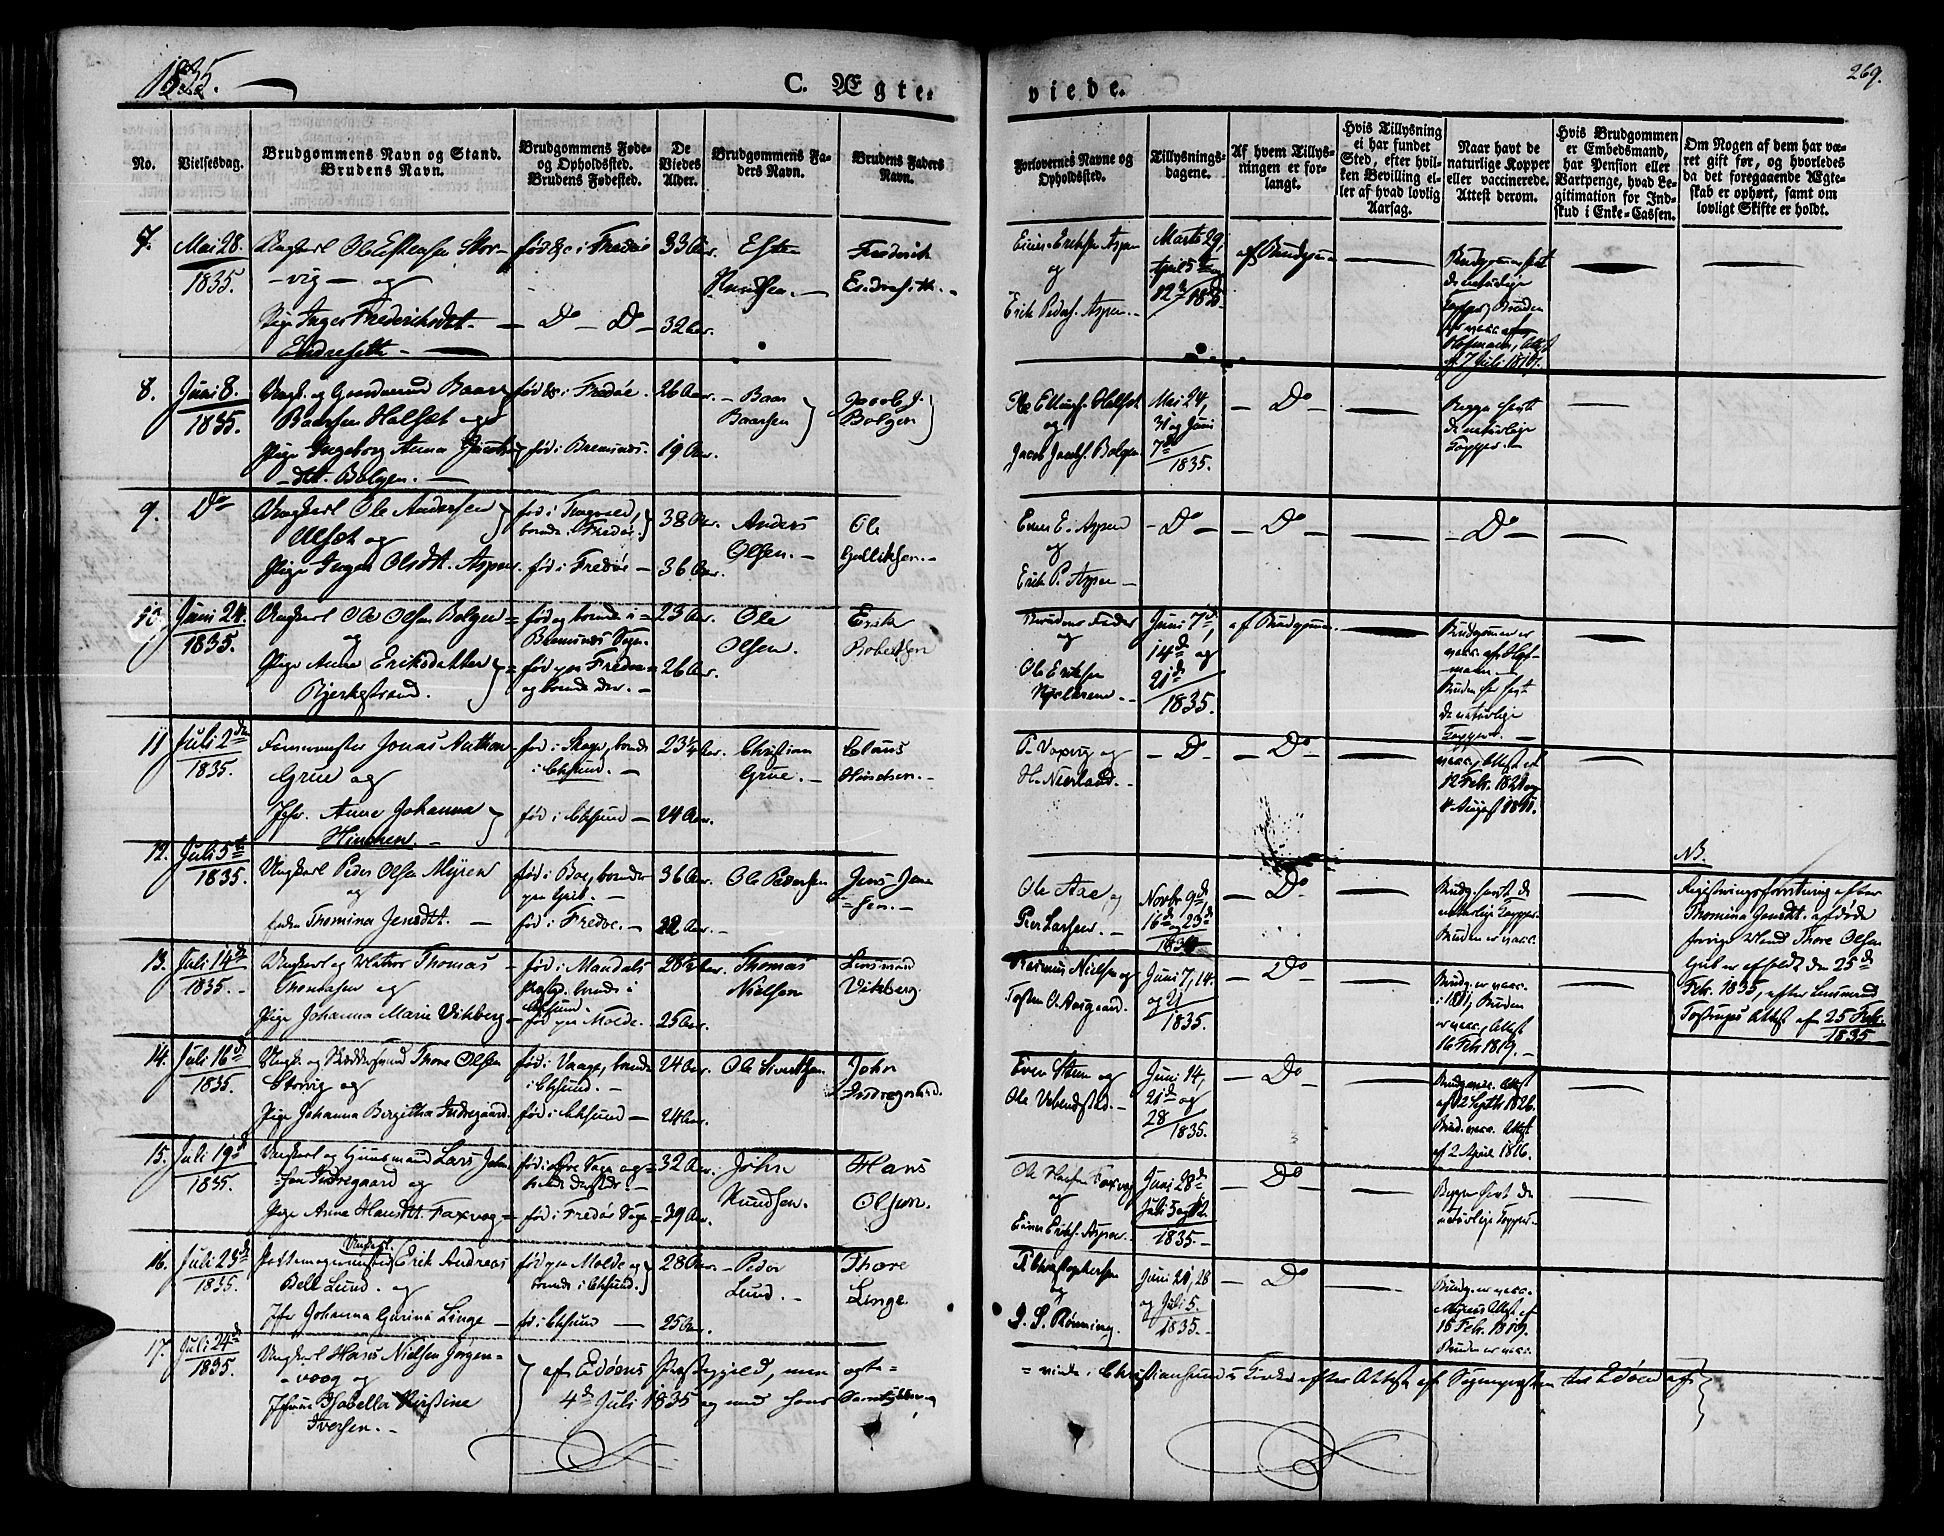 1835.
C. Ægte-
viede.
269.
No.
Vielsesdag.
Brudgommens Navn og Stand.
Brudens Navn.
Brudgommens Føde-
og Opholdssted.
Brudens Fødested.
De
Viedes
Alder.
Brudgommens Fa-
ders Navn.
Brudens Faders
Navn.
Forlovernes Navne og
Opholdssted.
Tillysnings-
dagene.
Af hvem Tillys-
ningen er for-
langt.
Hvis Tillysning
ei har fundet
Sted, efter hvil-
ken Bevilling el-
ler af hvad lovlig
Aarsag.
Naar havt de
naturlige Kopper
eller vaccinerede.
Attest derom.
Hvis Brudgommen
er Embedsmand,
har Pension eller
Vartpenge, hvad Le-
gitimation for Ind-
skud i Enke-Cassen.
Om Nogen af dem har væ-
ret gift før, og hvorledes
da det foregaaende Ægte-
skab er ophørt, samt om
lovligt Skifte er holdt.
7.
Mai 28.
1835.
Ungkarl Ole Estensen Stor-
vig og
Pige Inger Frederichsdtt.
Endresette
fød &c i Fredøe
Do Do
33 Aar.
32 Aar.
Esten
Knudsen.
Frederik
Einer Eriksen Aspen
og
Erik Peders. Aspen.
Marts 29,
April 5te og
12te 1835.
af Brudgom
Brudgommen havt
de naturlige
Kopper, Bruden
er vacc. af
Hofmann, Attest
af 7 Juli 1819.
8.
Juni 8.
1835.
Ungk. og Gaardmand Baar
Baarsen Halset og
Pige Ingeborg Anna Jacobs-
dtt. Bolgen.
fød &c i Fredøe.
fød i Bremsnes.
26 Aar.
19 Aar.
Baar
Baarsen
Jacob J.
Bolgen
Ole Ellings. Halset
og
Jacob Jacobs. Bolgen
Mai 24,
31 og Juni
7de
1835.
Do
Begge havt
de naturlige
Kopper.
9.
Do
Ungkarl Ole Andersen
Ulset og
Pige Inger Olsdtt. Aspen.
fød i Tingvold,
boende i Fredøe.
fød i Fredøe
38 Aar.
36 Aar.
Anders
Olsen.
Ole
Gulliksen.
Einer E. Aspen
og
Erik P. Aspen
Do
Do
Do
10.
Juni 24.
1835.
Ungkarl Ole Olsen Bolgen
og
Pige Anne Eriksdatter
Bjerkestrand.
fød og boende i
Bremsnes Sogn.
fød paa Fredøe
og boende der.
23 Aar.
26 Aar.
Ole
Olsen.
Erik
Robertsen
Brudens Fader
og
Ole Eriksen
Juni 7de,
14de og
21de
1835.
af Brudgom.
Brudgommen er
vacc. af Hof-
mann
Bruden har havt
de naturlige
Kopper.
11
Juli 2den
1835.
Jonas Anthon
Grue og
Jfr. Anne Johanna
Hinchen.
boende
i Chsund.
fød i Chsund
23½ Aar.
24 Aar.
Christian
Grue.
Claus
Hinchen.
P. Voxvig og
H. Nierland.
Do
Do
vacc. Attest af
12 Febr. 1820 og
1811.
12.
Juli 5te
1835.
Ungkarl Peder Olsen Myren
og
Enken Thomina Jensdtt.
fød i Boe, boende
paa Grib.
fød i Fredøe.
36 Aar.
22 Aar.
Ole Pedersen
Jens Jen-
sen.
Ole Aae, og
Peer Larsen.
Novbr. 9de,
16de og 23de
1834
Do
Brudg. havt de
naturlige Kopper.
Bruden er vacc.
NB.
Registreringsforretning efter
Thomina Jensdtt. afdøde
forrige Mand Thore Olsen
Grib er afholdt den 25de
Febr. 1835, efter Lensmand
Tostrups Attest af 25 Febr.
1835
13.
Juli 14de
1835.
Ungkarl og Matros Thomas
Thomasen og
Pige Johanna Marie Vikberg
fød i Mandals
Præstg. boende i
Chsund.
fød paa Molde.
28½ Aar.
25 Aar.
Thomas
Nielsen
Lensmand
Vikberg
Rasmus Nielsen og
Torsten O. Aasgaard.
Juni 7, 14.
og 21
1835.
Do
Brudg. er vacc.
i 1811, Bruden
er vacc. Attest
16 Febr. 1819.
14.
Juli 16de
1835.
Thore Olsen
Storvig og
Pige Johanna Bergitha Indregaard.
fød i Vaage, boende
i Chsund.
fød i Chsund
24 Aar.
24 Aar.
Ole Sivertsen
John
Indregaard.
Even Steen og
Ole
Juni 14,
21de og
28
1835.
Do
Brudg. vacc. Attest
af 12 Septbr. 1826.
Brud. vacc. Attest
af 2 April 1816.
15.
Juli 19de
1835.
Ungkarl og Huusmand Lars John-
sen Indregaard og
Pige Anna Hansdtt. Faxvog
fød i Øre Sogn og
boende dersteds.
fød i Fredøe Sogn
32 Aar.
39 Aar.
John
Knudsen.
Hans
Olsen.
Ole Hansen Faxvog
og
Einer Eriks. Aspen
Juni 28de
Juli 5 og 12.
1835.
Do
Begge havt de
naturlige Kopper.
16.
Juli 23de
1835.
Ungkarl.
Erik Andreas
Bell Lund. og
Jfr. Johanna Gurina Linge
fød paa Molde og
boende i Chsund.
fød i Chsund
28 Aar.
25 Aar.
Peder
Lund.
Thore
Linge
P. Christophersen
og
J. S. Rønning.
Juni 21, 28
og Juli 5.
1835.
Do
Brudg. er vacc.
Attest af
15 Febr. 1819.
Bruden er vacc.
17.
Juli 24de
1835.
Ungkarl Hans Nielsen Jørgen-
voog og
Jfr. Isabella Kirstine
Iversen.
af Edøens Præstegjeld, men ægte-
4de Juli 1835 og med hans Samtykke.
viede i Christiansunds Kirke efter Attest af Sognepræsten til Edøen af